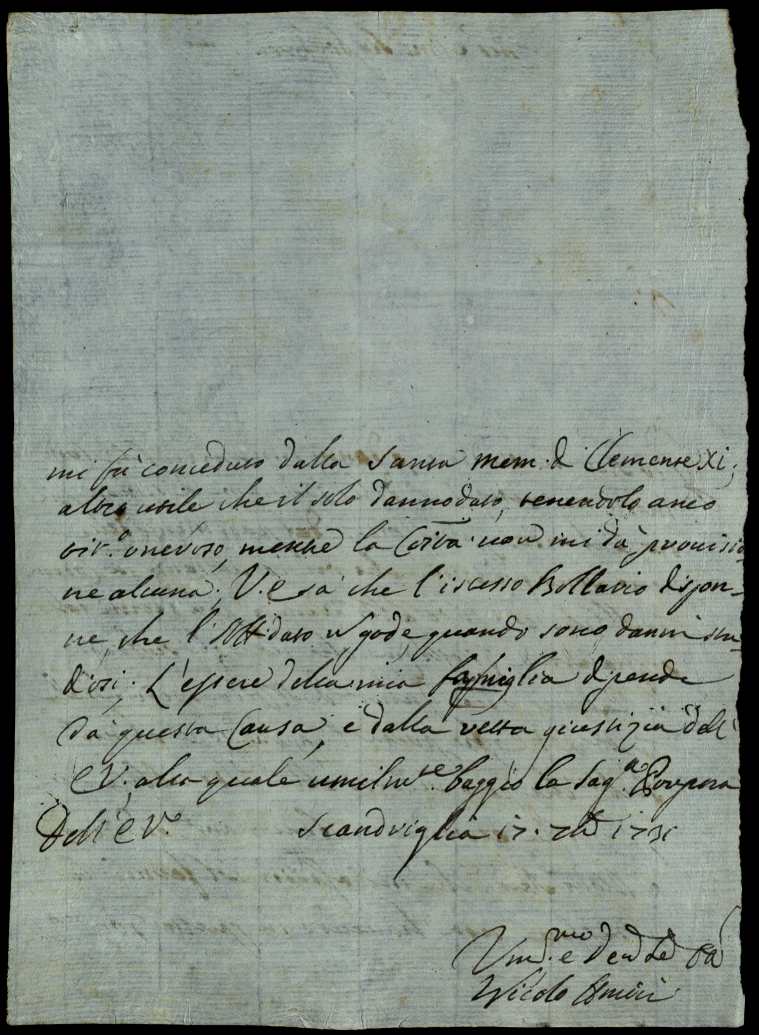 mi fù conceduto dalla Santa mem: di Clemente XI;
altro utile che il solo dannodato, tenendolo anco
oneroso, mentre la Corte non mi dà provisio-
ne alcuna. V. E. sà che l'istesso Bollario dispon-
ne, che l' Affidato gode, quando sono danni stu-
diosi; L'essere della mia famiglia dipende
dà questa Causa, e dalla retta giustizia dell'
E V. alla quale umilm.te baggio la Sag.a Porpora
Dell' E V.a Scandriglia 17. 7bre 1731
Um.mo e Dev.
Nicolo